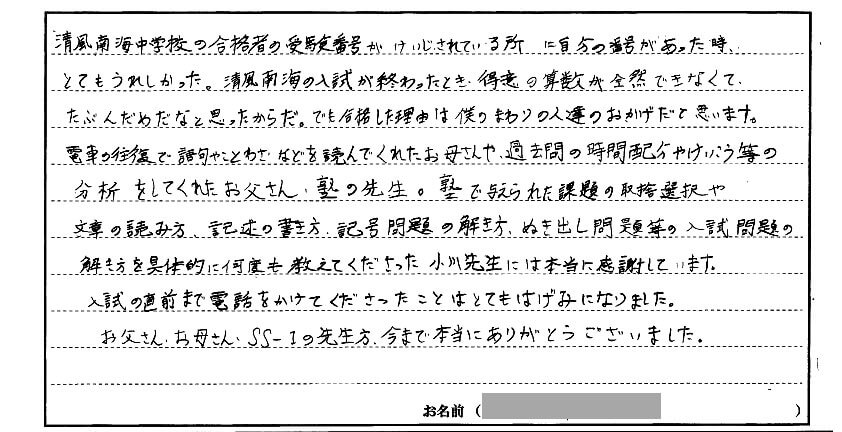 清風南海中学校の合格者の受験番号がけいじされている所に自分の番号があった時、
とてもうれしかった。清風南海の入試が終わったとき、得意の算数が全然できなくて、
たぶんだめだなと思ったからだ。でも合格した理由は僕のまわりの人達のおかげだと思います。
電車の往復で語句やことわざなどを読んでくれたお母さんや、過去問の時間配分やけいこう等の
分析をしてくれたお父さん、塾の先生。塾で与えられた課題の取捨選択や
文章の読み方、記述の書き方、記号問題の解き方、ぬき出し問題等の入試問題の
解き方を具体的に何度も教えてくださった小川先生には本当に感謝しています。
入試の直前まで電話をかけてくださったことはとてもはげみになりました。
お父さん、お母さん、SS-1の先生方、今まで本当にありがとうございました。
お名前( )